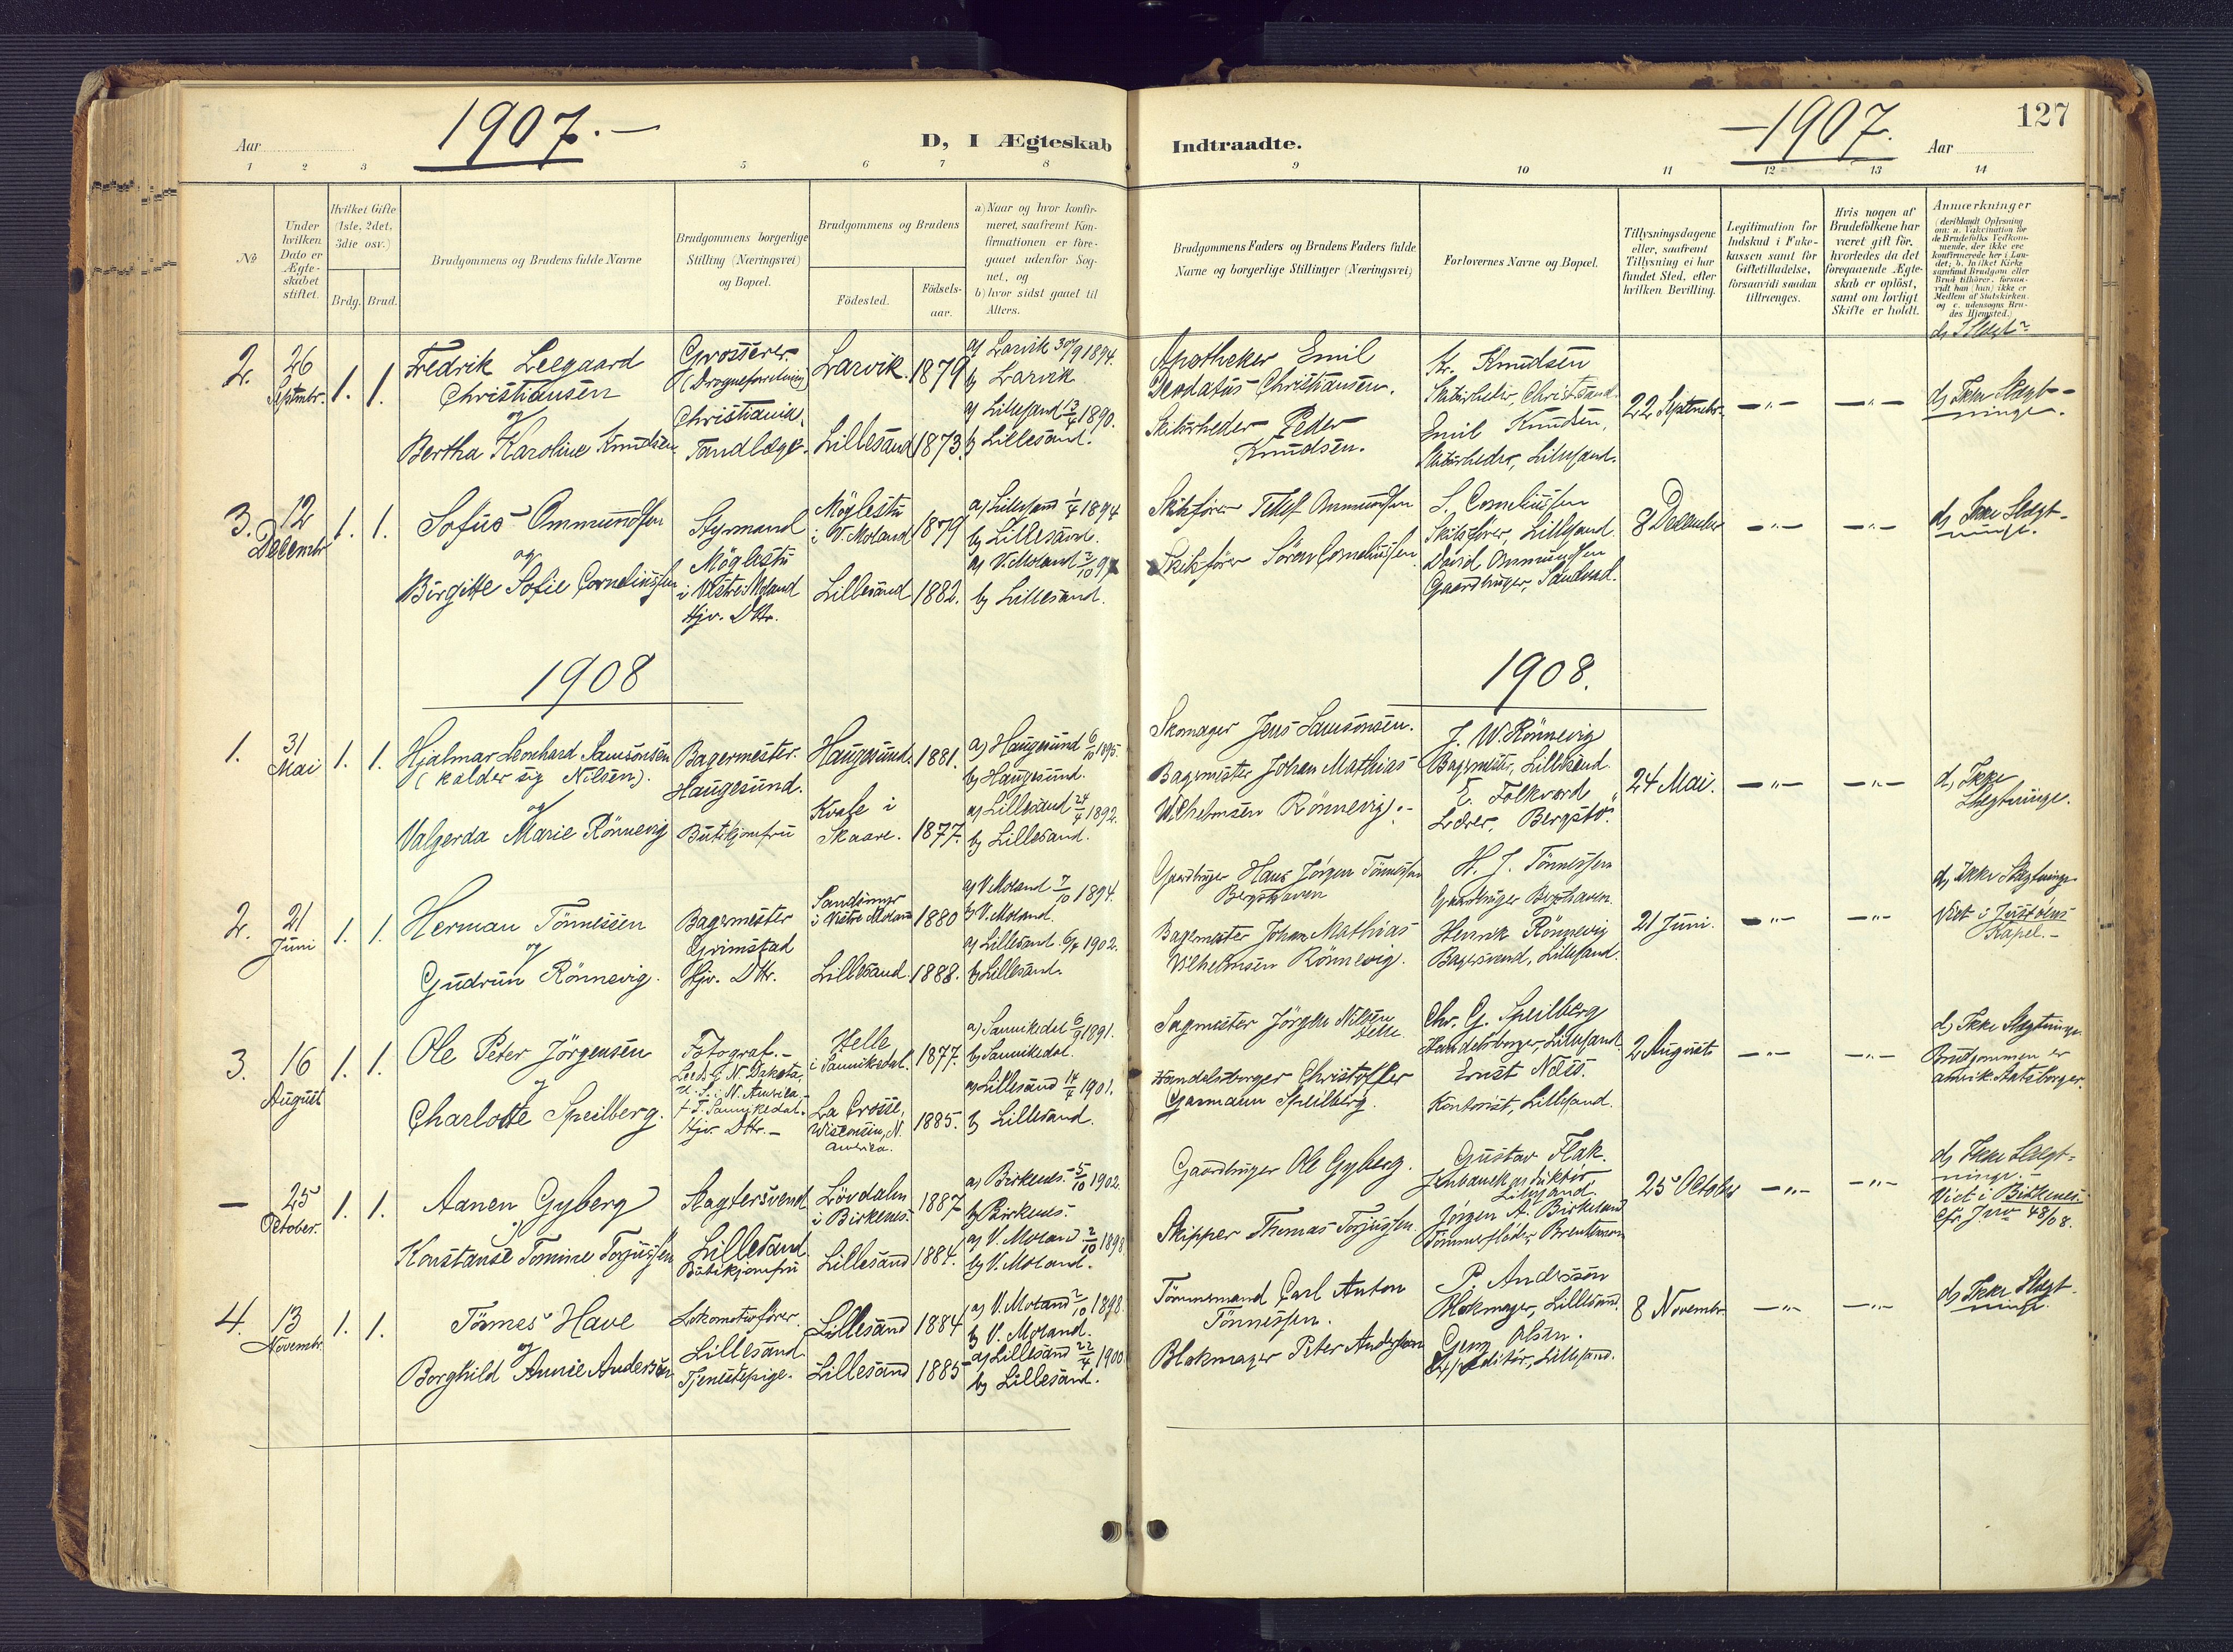 1907.-
Aar
D, I Ægteskab
Indtraadte.
-1907.
Aar
127
1 2 3 5 6 7 8 9 10 11 12 13 14
No
Under hvilken Dato er Ægte-skabet stiftet.
Hvilket Gifte (1ste, 2det, 3die osv.)
Brdg. Brud.
Brudgommens og Brudens fulde Navne
Brudgommens borgerlige Stilling (Næringsvei) og Bopæl.
Brudgommens og Brudens
Födested.
Födsels-aar.
a) Naar og hvor konfir-meret, saafremt Kon-firmationen er fore-gaaet udenfor Sog-net, og
b) hvor sidst gaaet til Alters.
Brudgommens Faders og Brudens Faders fulde Navne og borgerlige Stillinger (Næringsvei)
Forlovernes Navne og Bopæl.
Tillysningsdagene eller, saafremt Tillysning ei har fundet Sted, efter hvilken Bevilling.
Legitimation for Indskud i Enke-kassen samt for Giftetilladelse, forsaavidt saadan tiltrænges.
Hvis nogen af Brudefolkene har været gift før, hvorledes da det foregaaende Ægte-skab er oplöst, samt om lovligt Skifte er holdt.
Anmærkninger
(deriblandt Oplysning om: a. Vakcination for de Brudefolks Vedkom-mende, der ikke ere konfirmerede her i Lan-det; b. hvilket Kirke-samfund Brudgom eller Brud tilhører, forsaa-vidt han (hun) ikke er Medlem af Statskirken, og c. udensogns Bru-des Hjemsted.)
2. 26 Septmbr. 1. 1.
Fredrik Leegaard
Christiansen
og
Bertha Karoline Knudsen
Grosserer
Christiania.
Tandlæge.
Larvik. 1879
Lillesand 1873.
a) Larvik 30/9 1894.
b) Larvik
a) Lillesand 13/4 1890.
b) Lillesand.
Apotheker Emil
Deodatus Christiansen.
Skibsrheder Peder
Knudsen.
Kr. Knudsen
Skibsrheder, Christsand.
Emil Knudsen,
Skibsrheder, Lillesand.
22 Septembr.
d) Ikke Slegt-
ninge.
3. 12 Decembr 1. 1.
Sofus Ommundsen
og
Birgitte Sofie Corneliussen
Styrmand
Möglestu
i Vestre Moland
Hjv. Dttr.
Möglestu
i V. Moland 1879
Lillesand 1882.
a) Lillesand 1/4 1894
b) Lillesand.
a) V. Moland 2/10 97
b) Lillesand.
Skibsförer Tellef Ommundsen
Skibsförer Sören Corneliussen
S. Corneliussen
Skibsförer, Lillesand
David Ommundsen
Gaardbruger, Sandvad.
8 December
d) Ikke Slegt-
ninge.
1908
1908.
1. 31 Mai 1. 1.
Hjalmar Leonhard Samsonsen
(kalder sig Nilsen).
og
Valgerda Marie Rönnevig
Bagermester.
Haugesund.
Butikjomfru
Haugesund. 1881.
Kvale i
Skaare. 1877.
a) Haugesund 6/10 1895.
b) Haugesund.
a) Lillesand 24/4 1892.
b) Lillesand.
Skomager Jens Samsonsen.
Bagermester Johan Mathias
Wilhelmsen Rönnevig.-
J. W. Rönnevig
Bagermester, Lillesand.
E. Folkvord
Lærer, Bergstö.
24 Mai.
d) Ikke
Slegtninge.
2. 21 Juni 1. 1.
Herman Tönnessen
og
Gudrun Rönnevig.
Bagermester
Grimstad
Hjv. Dttr.
i Vestre Moland 1880
Lillesand. 1888.
a) V. Moland 7/10 1894.
b) V. Moland.
a) Lillesand 6/4 1902.
b) Lillesand.
Gaardbruger Hans Jörgen Tönnessen
Bergshaven
Bagermester Johan Mathias
Vilhelmsen Rönnevig.
H. J. Tönnessen
Gaardbruger Bergshaven.
Henrik Rönnevig
Bagersvend, Lillesand.
21 Juni.
d) Ikke Slegtninge.
Viet i Justöens
Kapel.-
3. 16 August 1. 1.
Ole Peter Jörgensen
og
Charlotte Speilberg.
Fotograf.-
Leeds, N. Dakota,
U. S. i N. Amerika.
f. T. Sannikedal.
Hjv. Dttr.-
Helle
i Sannikedal. 1877.
La Crosse,
Wisconsin, N.
Amerika. 1885.
a) Sannikedal 6/9 1891.
b) Sannikedal.
a) Lillesand 14/4 1901.
b) Lillesand.
Sagmester Jörgen Nilsen
Helle.
Handelsborger Christoffer
Garmann Speilberg.
Chr. G. Speilberg
Handelsborger, Lillesand.
Ernst Næss.
Kontorist, Lillesand.
2 August
d) Ikke Slegtninge.
Brudgommen er
amrik. Statsborger.
- 25 October. 1. 1.
Aanen Gyberg
og
Konstanse Tomine Torjussen
Slagtersvend
Lillesand
Butikjomfru
Lövdalen
i Birkenes. 1887
Lillesand 1884.
a) Birkenes 5/10 1902.
b) Birkenes.
a) V. Moland 2/10 1898
b) V. Moland.
Gaardbruger Ole Gyberg.
Skipper Thomas Torjussen.
Gustav Flak.
Jernbanekonduktör
Lillesand.
Jörgen A. Birkeland
Tömmerflöder,
25 October
d) Ikke Slegt-
ninge.-
Viet i Birkenes.
Cfr. Jnr 48/08.
4. 13 Novembr. 1. 1.
Tönnes Have
og
Borghild Annie Andersen
Lokomotivförer.
Lillesand
Tjenestepige.
Lillesand 1884
Lillesand 1885
a) V. Moland 2/10 1898.
b) V. Moland.
a) Lillesand 22/4 1900
b) Lillesand.
Tömmermand Carl Anton
Tönnessen.
Blokmager Peter Anderssen
P. Andersson
Blokmager, Lillesand.
Georg Olsen.
Expeditör, Lillesand.
8 Novembr
d) Ikke Slegt-
ninge.